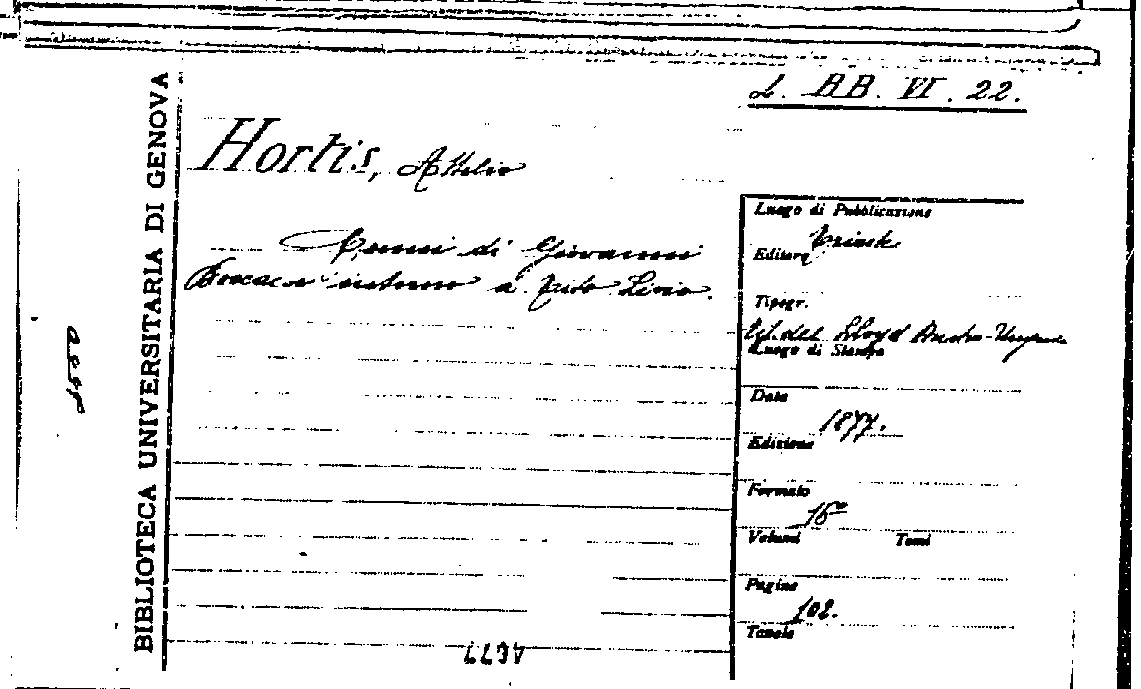 L. BB. VI. 22.
Hortis, Attilio
Cenni di Giovanni
Boccacci intorno a Tito Livio.
BIBLIOTECA UNIVERSITARIA DI GENOVA
Luogo di Pubblicazione
Trieste
Editore
Tipogr.
Tip. del Lloyd Austro-Ungarico
Luogo di Stampa
Data
1877.
Edizione
Formato
16°
Volumi Tomi
Pagine
102.
Tavole